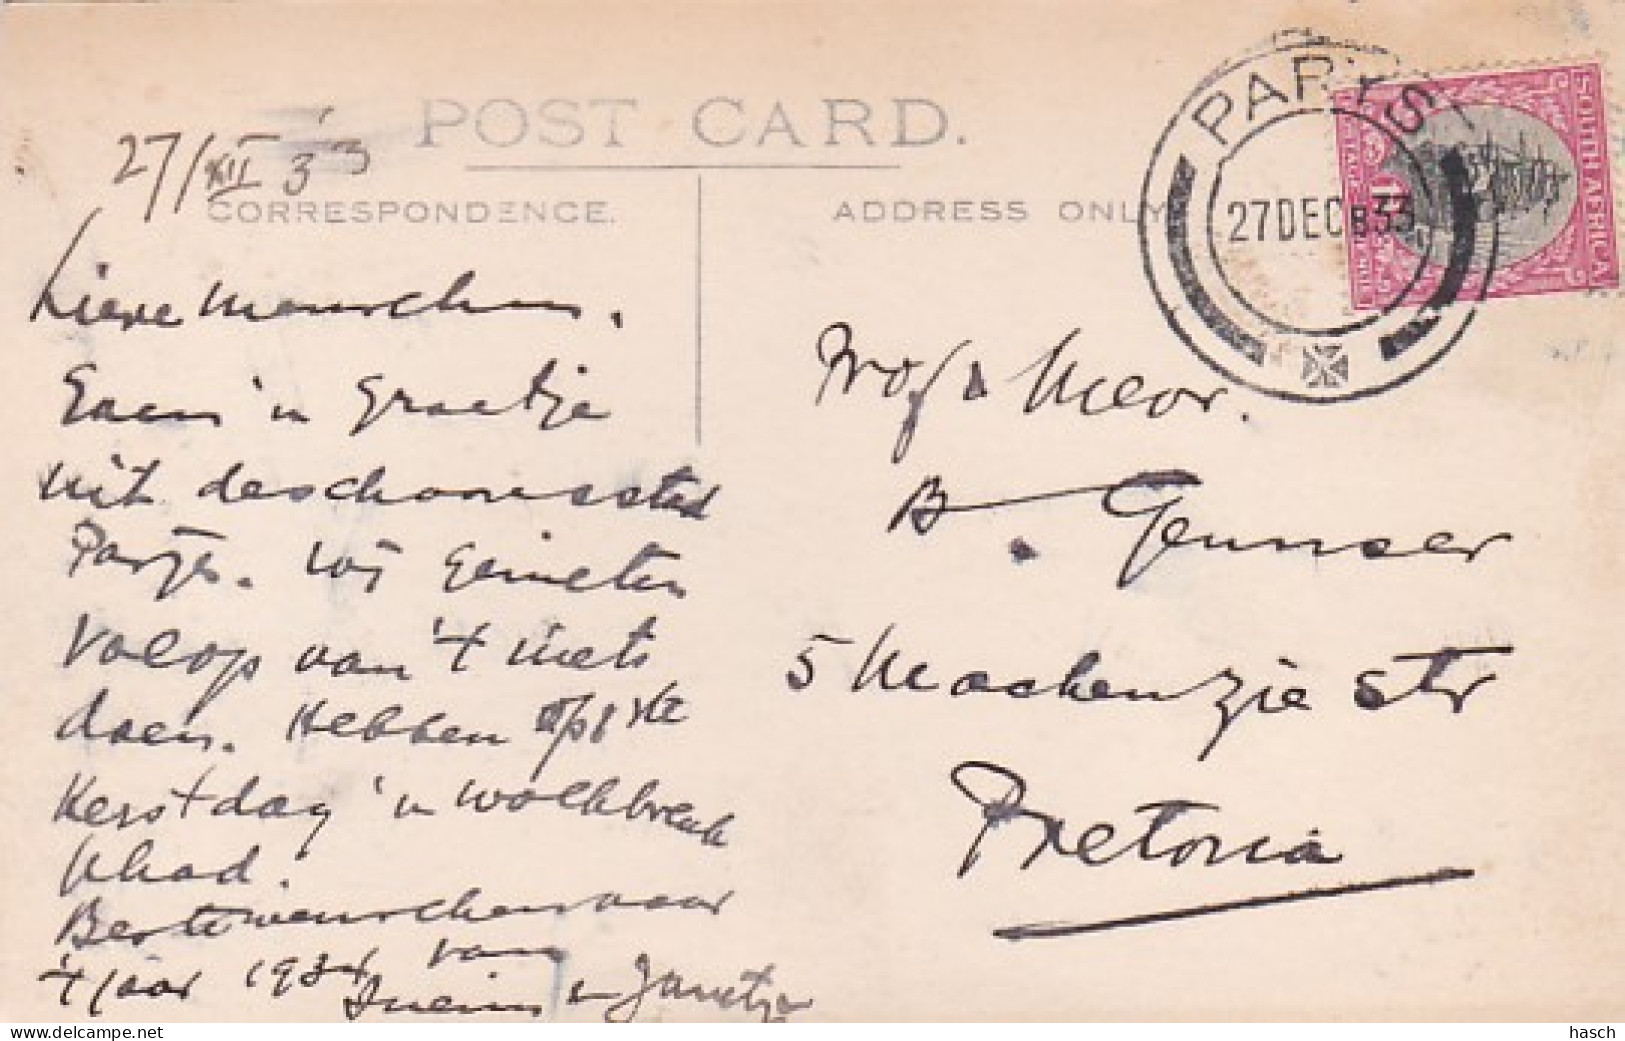 POST CARD.
27/XII '33
CORRESPONDENCE.
ADDRESS ONLY
PARYS
27 DEC 33
SOUTH AFRICA
Lieve Menschen.
Even 'n Groetje
uit de schoone stad
Parys. Wij genieten
volop van 't niets
doen. Hebben op 1ste
Kerstdag 'n wolkbreuk
gehad.
Beste wenschen voor
't jaar 1934 van
en Jantje
Prof & Mevr.
B. Gemser
5 Mackenzie str
Pretoria
hasch